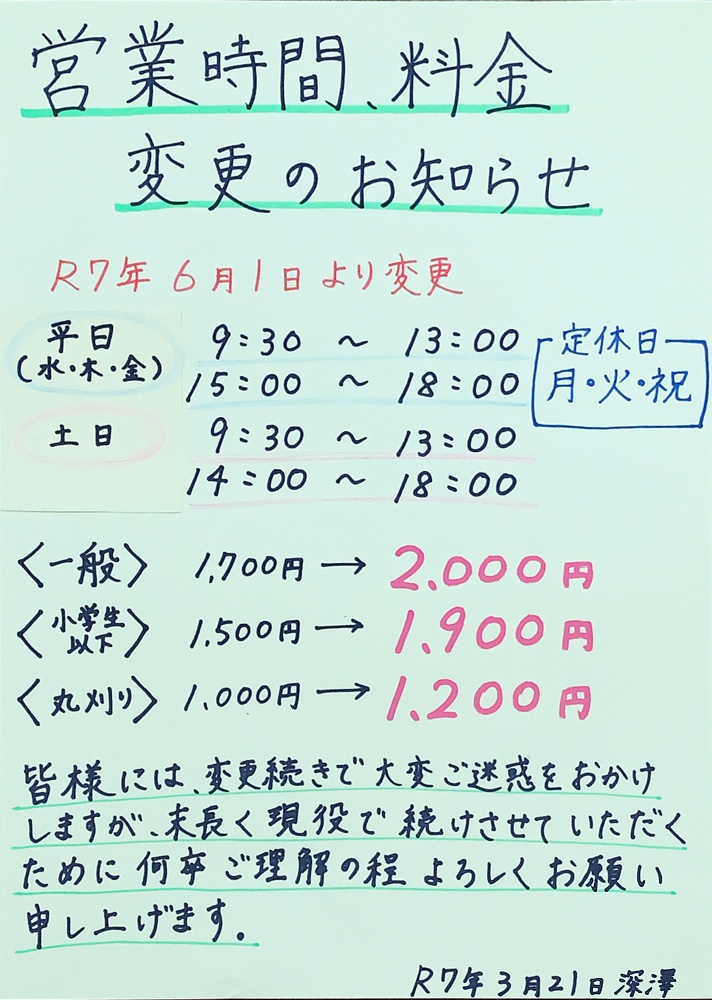 営業時間、料金
変更のお知らせ
R7年6月1日より変更
平日 9:30 ～ 13:00
(水・木・金) 15:00 ～ 18:00
定休日
月・火・祝
土日 9:30 ～ 13:00
14:00 ～ 18:00
〈一般〉 1,700円 → 2,000円
〈小学生以下〉 1,500円 → 1,900円
〈丸刈り〉 1,000円 → 1,200円
皆様には、変更続きで大変ご迷惑をおかけ
しますが、末長く現役で続けさせていただく
ために何卒ご理解の程よろしくお願い
申し上げます。
R7年3月21日 深澤